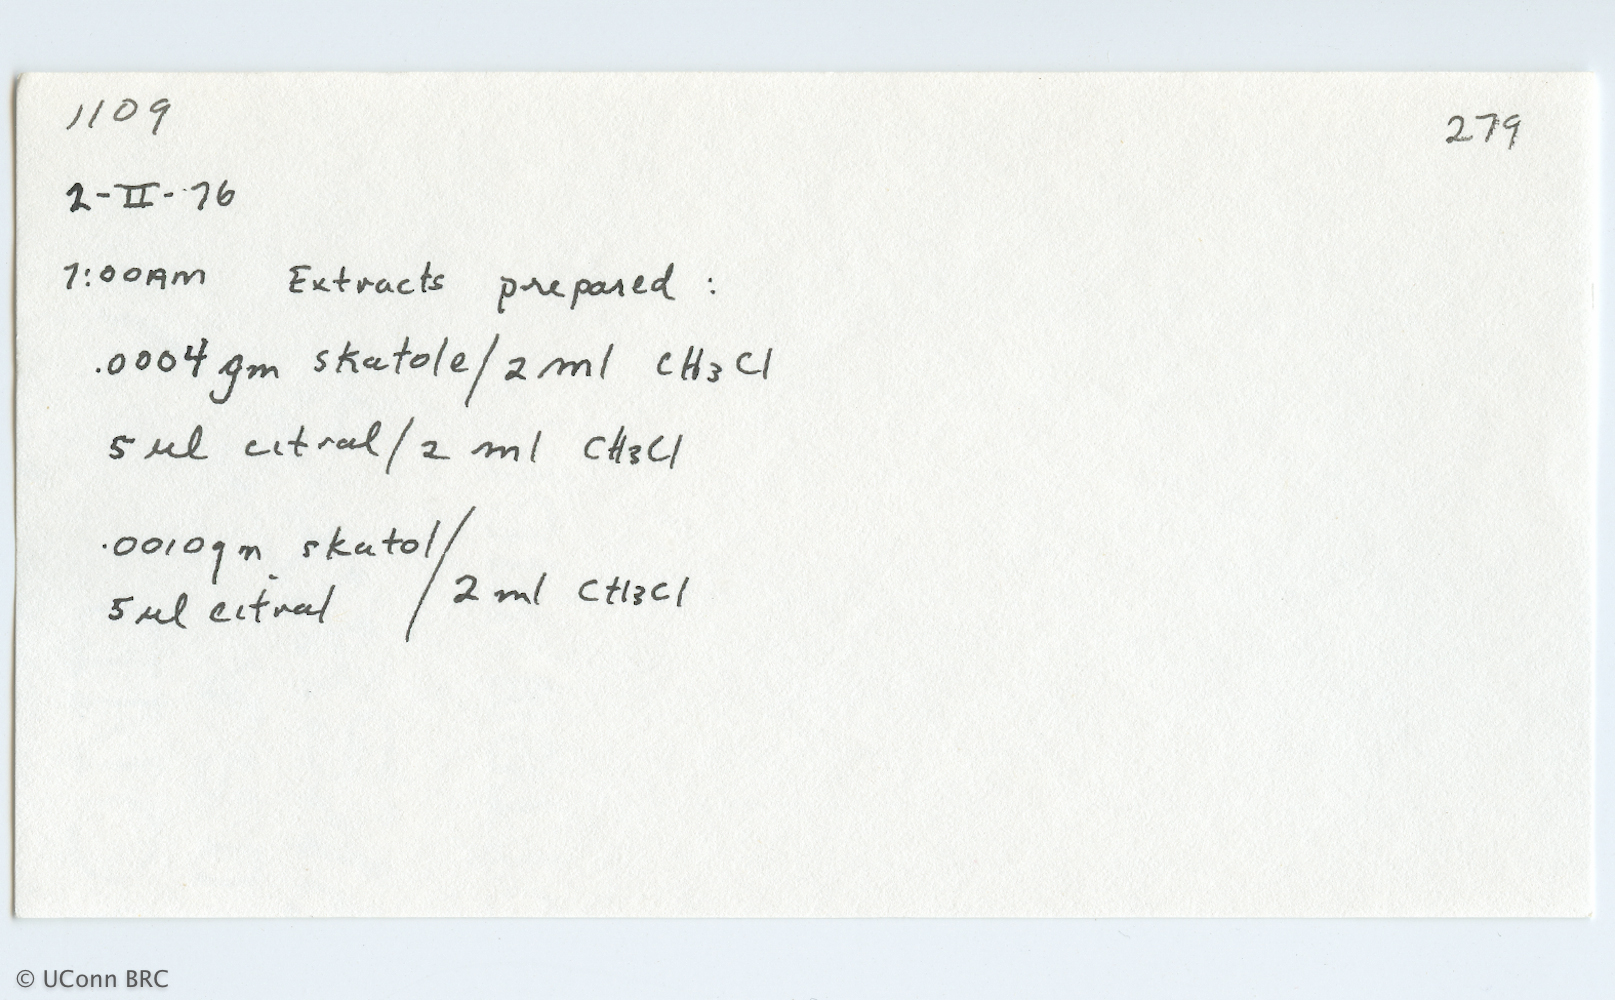 1109
279
2-II-76
7:00AM Extracts prepared :
.0004 gm skatole/2 ml CH3Cl
5 µl citral/2 ml CH3Cl
.0010gm skatol/
5 µl citral / 2 ml CH3Cl
© UConn BRC